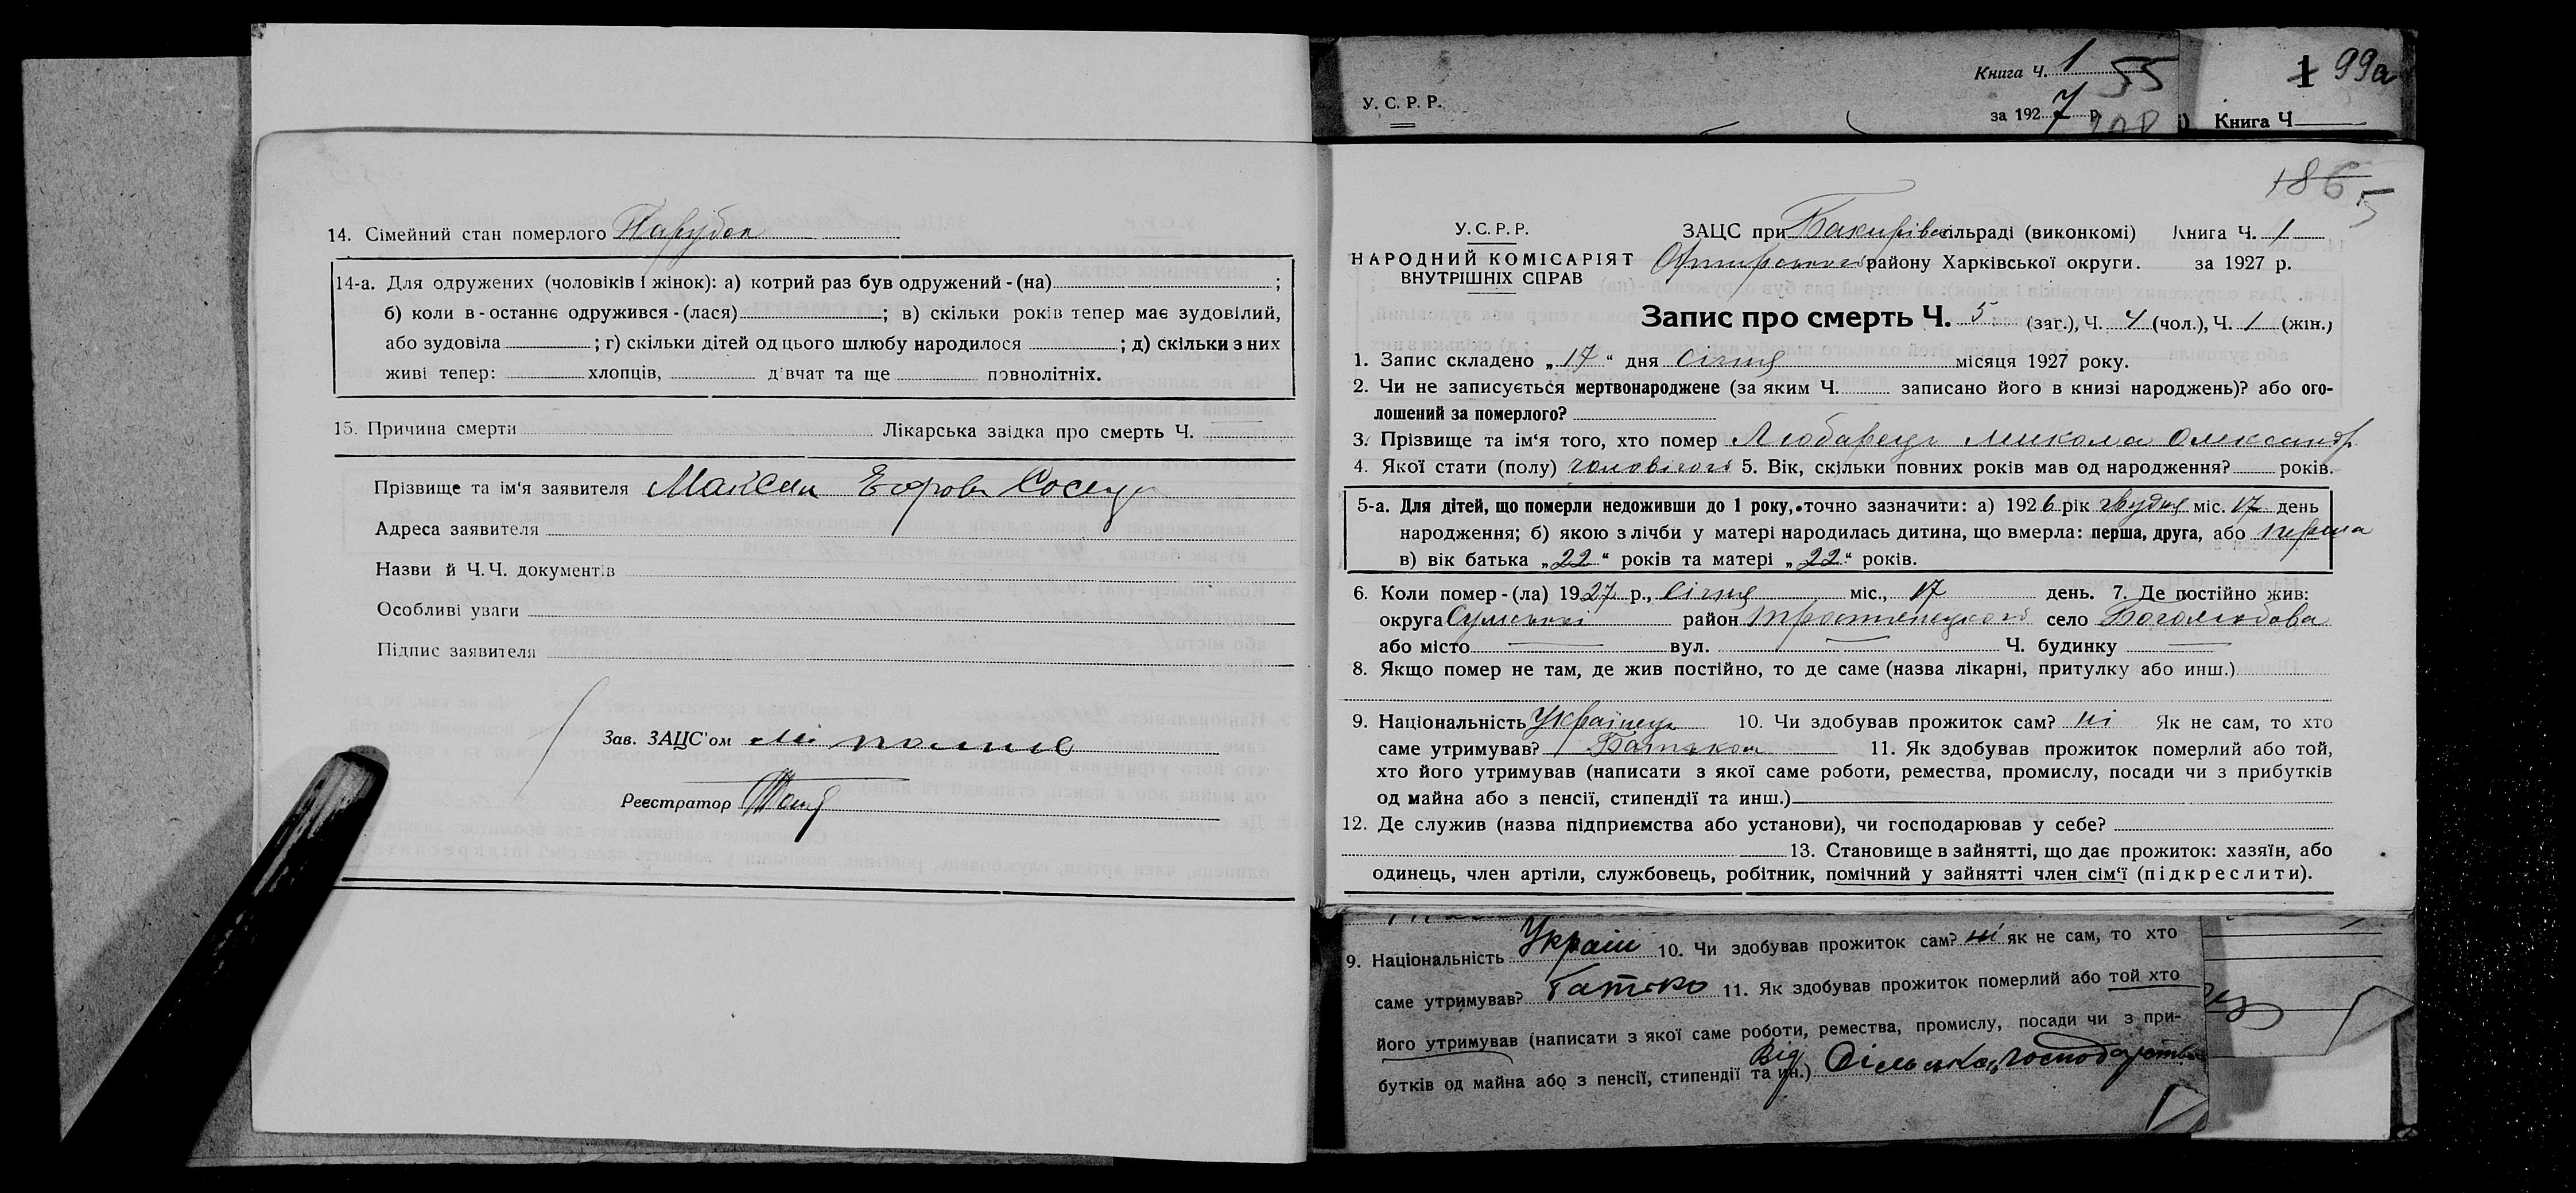 14. Сімейний стан померлого Парубок
14-а. Для одружених (чоловіків і жінок): а) котрий раз був одружений-(на) ;
б) коли в-останнє одружився-(лася) ; в) скільки років тепер має зудовілий,
або зудовіла ; г) скільки дітей од цього шлюбу народилося ; д) скільки з них
живі тепер: хлопців, дівчат та ще повнолітніх.
15. Причина смерти Лікарська звідка про смерть Ч.
Прізвище та ім'я заявителя Максим Егоров
Адреса заявителя
Назви й Ч.Ч. документів
Особливі уваги
Підпис заявителя
Зав. ЗАЦС'ом
Реєстратор
Книга Ч. 1 55
У. С. Р. Р.
за 1927 р.
1 99а
Книга Ч
186 5
У. С. Р. Р.
НАРОДНИЙ КОМІСАРІЯТ
ВНУТРІШНІХ СПРАВ
ЗАЦС при Бакирівск сільраді (виконкомі) Книга Ч. 1
району Харківської округи. за 1927 р.
Запис про смерть Ч. 5 (заг.), Ч. 4 (чол.), Ч. 1 (жін.)
1. Запис складено „17“ дня січня місяця 1927 року.
2. Чи не записується мертвонароджене (за яким Ч. записано його в книзі народжень)? або ого-
лошений за померлого?
3. Прізвище та ім'я того, хто помер Любарець Микола Олександр
4. Якої стати (полу) чоловічої 5. Вік, скільки повних років мав од народження? років.
5-а. Для дітей, що померли недоживши до 1 року, точно зазначити: а) 1926 рік грудня міс. 17 день
народження; б) якою з лічби у матері народилась дитина, що вмерла: перша, друга, або перша
в) вік батька „22“ років та матері „22“ років.
6. Коли помер-(ла) 1927 р., січня міс., 17 день. 7. Де постійно жив:
округа Сумської район Тростенецкого село Боголюбова
або місто вул. Ч. будинку
8. Якщо помер не там, де жив постійно, то де саме (назва лікарні, притулку або инш.)
9. Національність Українец 10. Чи здобував прожиток сам? ні Як не сам, то хто
саме утримував? Батьком 11. Як здобував прожиток померлий або той,
хто його утримував (написати з якої саме роботи, ремества, промислу, посади чи з прибутків
од майна або з пенсії, стипендії та инш.)
12. Де служив (назва підприємства або установи), чи господарював у себе?
13. Становище в зайнятті, що дає прожиток: хазяїн, або
одинець, член артіли, службовець, робітник, помічний у зайнятті член сім'ї (підкреслити).
9. Національність Україн 10. Чи здобував прожиток сам? ні як не сам, то хто
саме утримував? Батько 11. Як здобував прожиток померлий або той хто
його утримував (написати з якої саме роботи, ремества, промислу, посади чи з при-
бутків од майна або з пенсії, стипендії та ин.) Від Сільська господарства